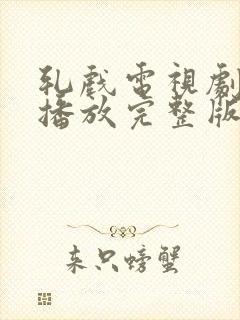 乳戲電視劇
播放完整版
来只螃蟹